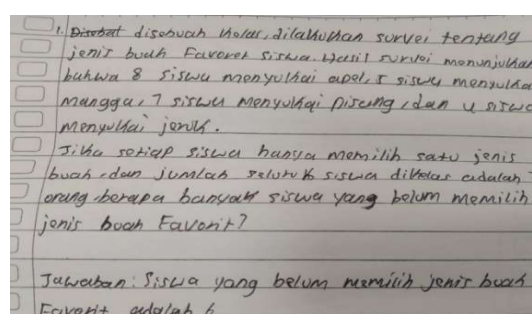 1. disebuah kelas, dilakukan survei tentang
jenis buah Favoret siswa. Hasil survei menunjukan
bahwa 8 siswa menyukai apel, 5 siswa menyukai
mangga, 7 siswa menyukai Pisang, dan 4 siswa
menyukai jeruk.
Jika setiap siswa hanya memilih satu jenis
buah, dan jumlah seluruh siswa dikelas adalah
orang berapa banyak siswa yang belum memilih
jenis buah Favorit?
Jawaban: Siswa yang belum memilih jenis buah
Favorit adalah